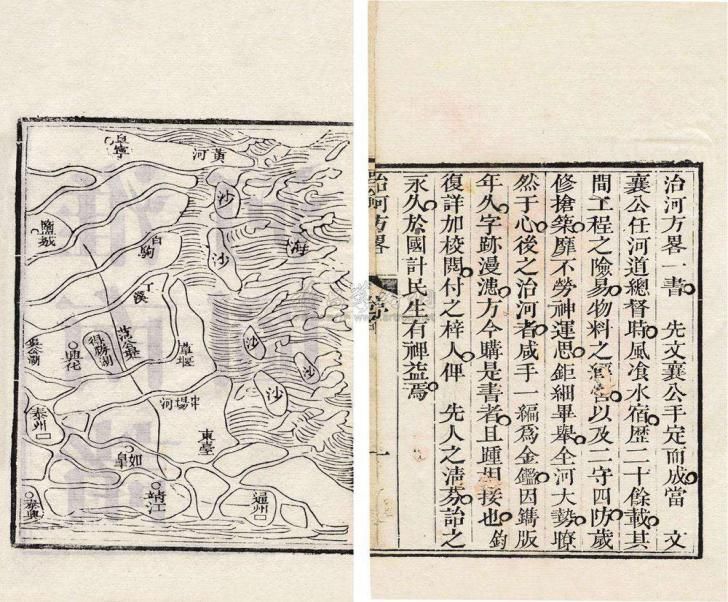 治河方畧一書　先文襄公手定而成當　文
襄公任河道總督時風飡水宿歴二十餘載其
間工程之險易物料之
以及二守四防歲
修搶築靡不勞神運思鉅細畢舉全河大勢瞭
然于心後之治河者咸手一編爲金鑑因鐫版
年久字跡漫漶方今購是書者且踵相接也鈞
復詳加校閱付之梓人俾　先人之淸芬詒之
永久於國計民生有裨益焉
治河方畧
一
黃河
沙
沙
海
沙
沙
沙
鹽城
白駒
丁溪
范公堤
得勝湖
興化
串塲河
東臺
泰州
如皐
靖江
通州
泰興